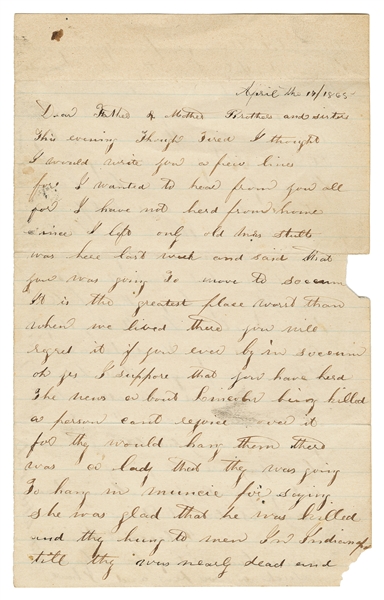 April the 18/1865
Dear Father & Mother Brothers and sisters
This evening Though Tired I thought
I would write you a few lines
for I wanted to hear from you all
for I have not herd from home
since I left only old Mrs
was here last week and said that
you was going To move to
It is the greatest place worst than
when we lived there you will
regret it if you ever by in
oh yes I suppose that you have herd
The news a bout being killed
a person cant rejoice over it
for they would hang them there
was a lady that they was going
To hang in muncie for saying
she was glad that he was killed
and they hung to men In
till they was nearly dead and